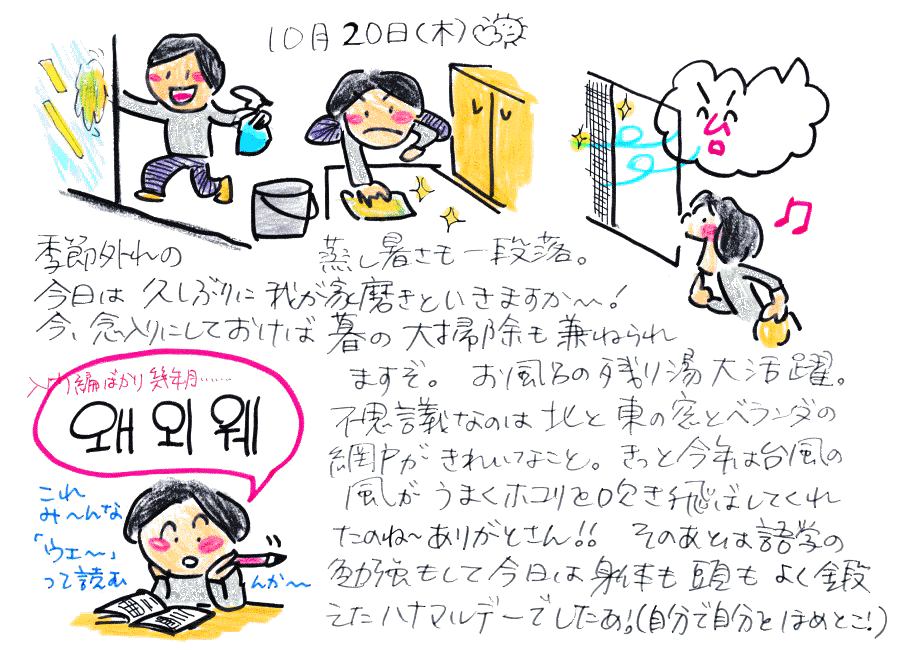 10月20日(木)
季節外れの 蒸し暑さも一段落。
今日は久しぶりに我が家磨きといきますか〜!
今、念入りにしておけば暮の大掃除も兼ねられ
ますぞ。 お風呂の残り湯大活躍。
不思議なのは北と東の窓とベランダの
網戸がきれいなこと。きっと今年は台風の
風がうまくホコリを吹き飛ばしてくれ
たのね〜ありがとさん!! そのあとは語学の
勉強もして今日は身体も頭もよく鍛
えたハナマルデーでしたぁ!(自分で自分をほめとこ!)
入門編ばかり幾年月……
왜 외 웨
これ
み〜んな
「ウェ〜」
って読む んか〜